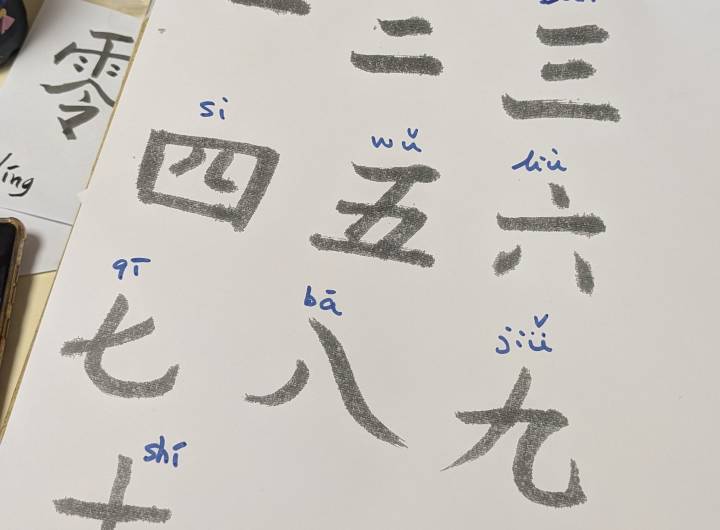 零
一 二 三
sì wǔ liù
四 五 六
qī bā jiǔ
七 八 九
shí
十